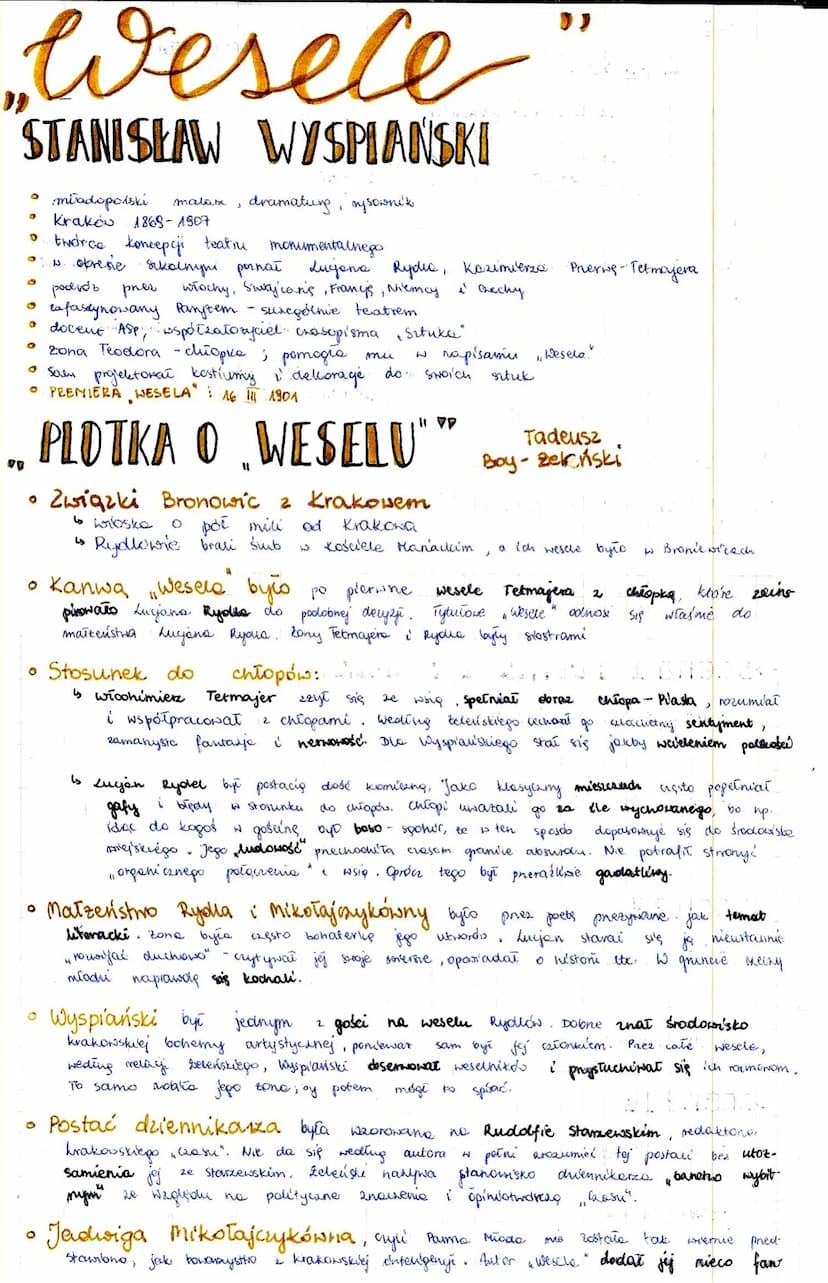 „Wesele”
STANISŁAW WYSPIAŃSKI
• młodopolski malarz, dramaturg, rysownik
• Kraków 1869-1907
• twórca koncepcji teatru monumentalnego
• w okresie szkolnym poznał Lucjana Rydla, Kazimierza Przerwę-Tetmajera
• podróż przez Włochy, Szwajcarię, Francję, Niemcy i Czechy
• zafascynowany Paryżem - szczególnie teatrem
• docent ASP, współzałożyciel czasopisma „Sztuka"
• żona Teodora - chłopka; pomogła mu w napisaniu „Wesela"
• Sam projektował kostiumy i dekoracje do swoich sztuk
• PREMIERA „WESELA": 16 III 1901
„PLOTKA O „WESELU""
Tadeusz
Boy-Żeleński
• Związki Bronowic z Krakowem
↳ wioska o pół mili od Krakowa
↳ Rydlowie brali ślub w kościele Mariackim, a ich wesele było w Bronowicach
• Kanwą „Wesela" było po pierwsze wesele Tetmajera z chłopką, które zains-
pirowało Lucjana Rydla do podobnej decyzji. Tytułowe „Wesele" odnosi się właśnie do
małżeństwa Lucjana Rydla. Żony Tetmajera i Rydla były siostrami
• Stosunek do chłopów:
↳ Włodzimierz Tetmajer zżył się ze wsią, spełniał obraz chłopa-Piasta, rozumiał
i współpracował z chłopami. Według Żeleńskiego cechował go szlachetny sentyment,
zamaszysta fantazja i nerwowość. Dla Wyspiańskiego stał się jakby wcieleniem polskości
↳ Lucjan Rydel był postacią dość komiczną. Jako klasyczny mieszczuch często popełniał
gafy i błędy w stosunku do chłopów. Chłopi uważali go za źle wychowanego, bo np.
idąc do kogoś w gościnę był boso - sądził, że w ten sposób dopasowuje się do środowiska
wiejskiego. Jego „ludowość" przechodziła czasem granice absurdu. Nie potrafił stworzyć
„organicznego połączenia" z wsią. Oprócz tego był przeraźliwie gadatliwy.
• Małżeństwo Rydla i Mikołajczykówny było przez poetę przeżywane jak temat
literacki. Żona była często bohaterką jego utworów. Lucjan starał się ją nieustannie
„rozwijać duchowo" - czytywał jej swoje wiersze, opowiadał o historii itd. W gruncie rzeczy
młodzi naprawdę się kochali.
• Wyspiański był jednym z gości na weselu Rydlów. Dobrze znał środowisko
krakowskiej bohemy artystycznej, ponieważ sam był jej członkiem. Przez całe wesele,
według relacji Żeleńskiego, Wyspiański obserwował weselników i przysłuchiwał się ich rozmowom.
To samo robiła jego żona; by potem mógł to spisać.
• Postać dziennikarza była wzorowana na Rudolfie Starzewskim, redaktorze
krakowskiego „Czasu". Nie da się według autora w pełni zrozumieć tej postaci bez utoż-
samienia jej ze Starzewskim. Żeleński nazywa stanowisko dziennikarza „bardzo wybit-
nym" ze względu na polityczne znaczenie i opiniotwórczą „Czasu".
• Jadwiga Mikołajczykówna, czyli Panna Młoda nie została tak wiernie przed-
stawiona, jak towarzystwo z krakowskiej inteligencji. Autor „Wesela" dodał jej nieco fan-